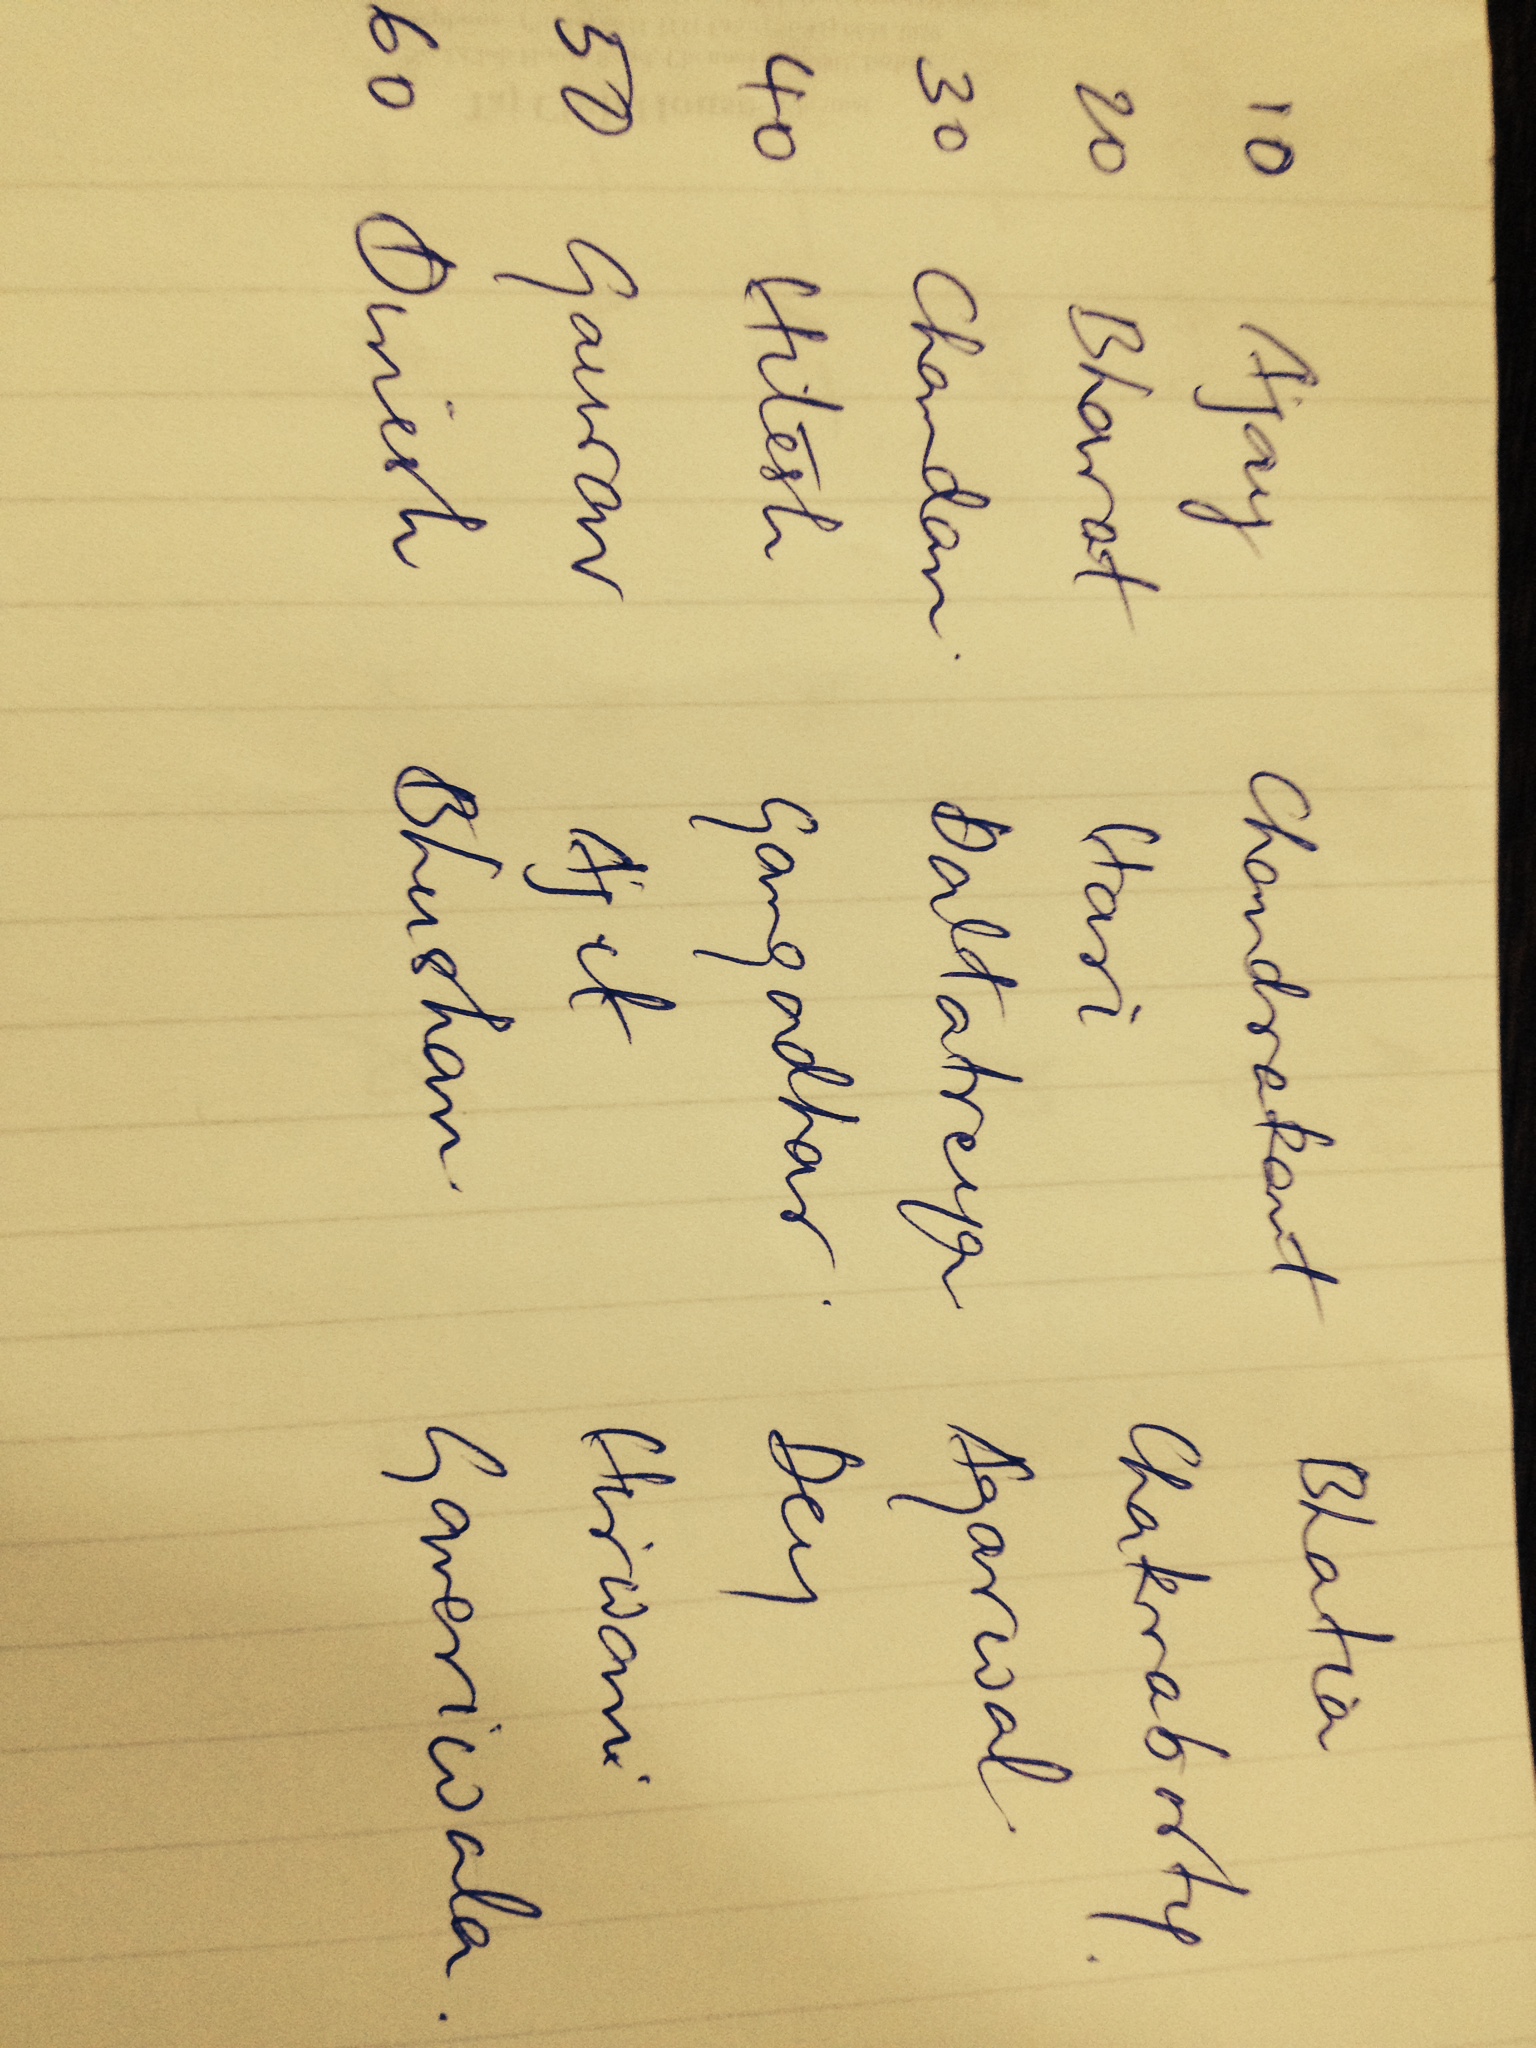 10 Ajay Chandrakant Bhatia
20 Bharat Hari Chakraborty.
30 Chandan. Dattatreya Agarwal.
40 Hitesh Gangadhar. Dey
50 Gaurav Ajit Hirwani
60 Dinesh Bhushan. Ganeriwala.